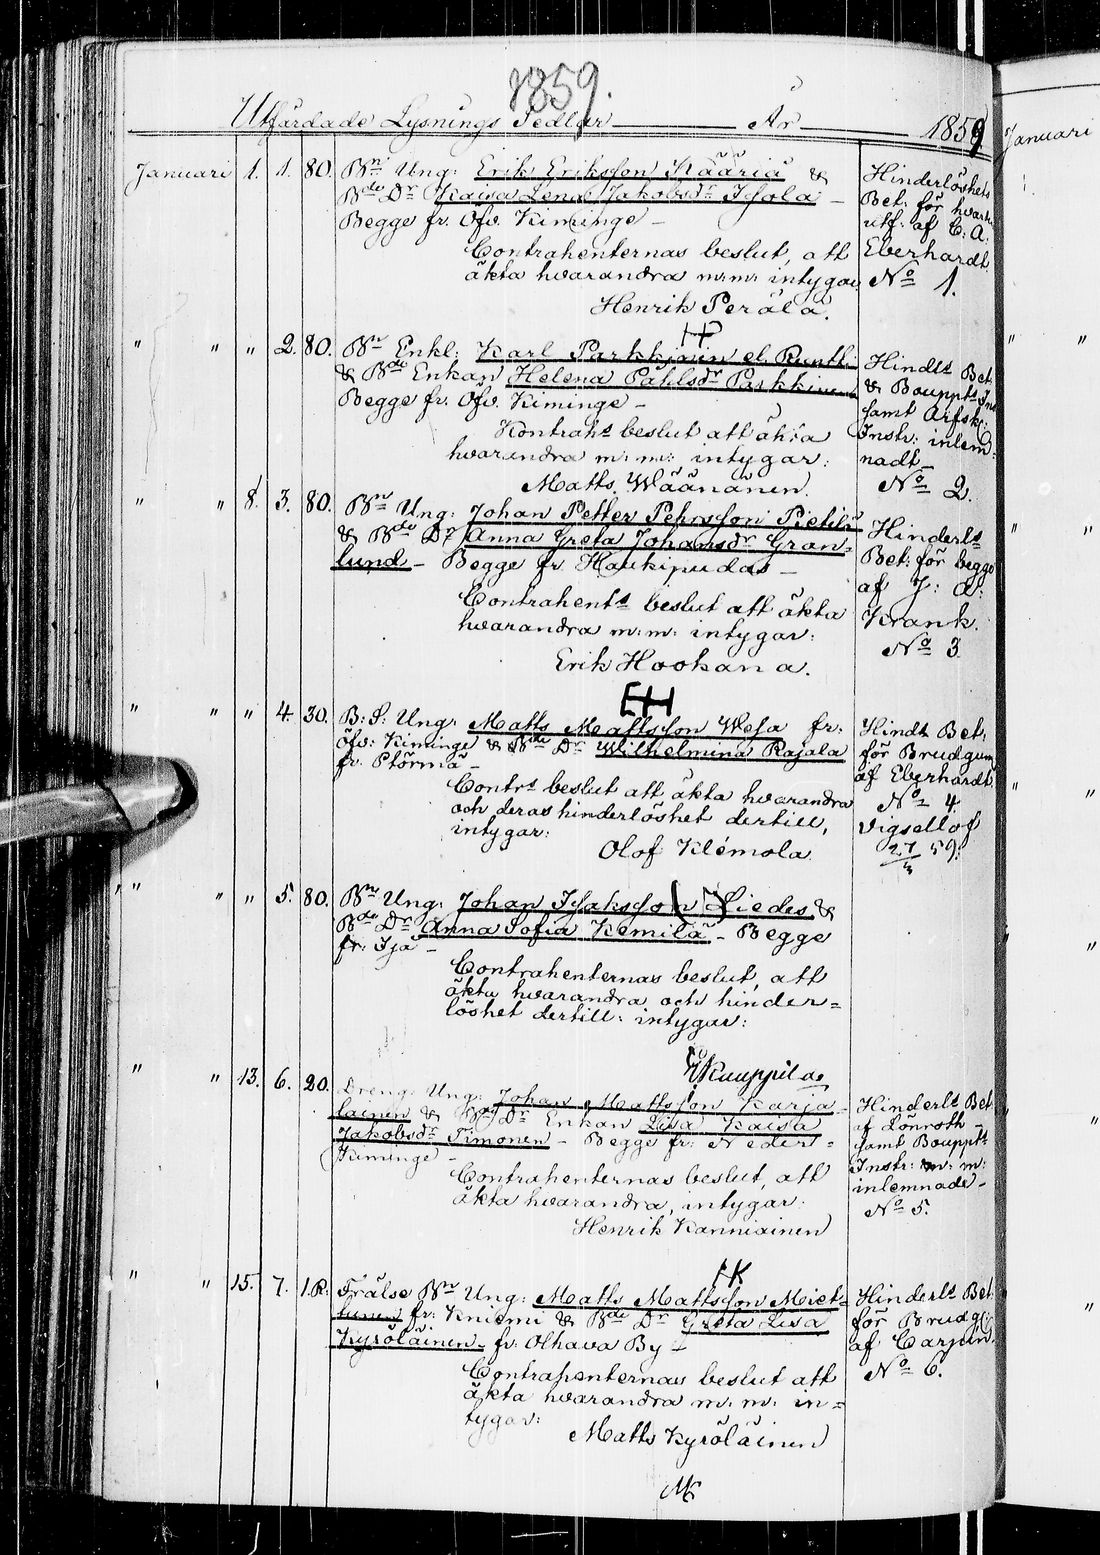 1859.
Utfärdade Lysnings Sedlar År 1859
Januari 1. 1. 80. Bn Ung: Erik Eriksson Kääriä &
Bde Dr Kaisa Lena Jakobsdr Isola –
Begge fr. Öfv. Kiminge –
Contrahenternas beslut, att
äkta hvarandra m:m: intygar
Henrik Perälä.
Hinderlöshets
Bet: för
utf: af C: A:
Eberhardt.
No 1.
" " " 2. 80. Bn Enkl: Karl Parkkinen el.
& Bde Enkan Helena Påhlsdr Parkkinen
Begge fr. Öfv. Kiminge –
Kontrahs beslut att äkta
hvarandra m: m: intygar:
Matts Wäänänen.
Hindls Bet:
& Bouppts
samt Arfsk:
Instr: inlem=
nadt –
No 2.
" " 8. 3. 80. Bn Ung: Johan Petter Pehrsson Pietilä
& Bde Dr Anna Greta Johansdr Gran=
lund – Begge fr Haukipudas –
Contrahents beslut att äkta
hvarandra m: m: intygar:
Erik Hookana.
Hinderls
Bet: för begge
af J: A:
Krank.
No 3.
" " " 4. 30. B: S: Ung: Matts Mattsson Wesa fr:
Öfv: Kiminge & Bde Dr Wilhelmina Rajala
fr.
Contrs beslut att äkta hvarandra
och deras hinderlöshet dertill,
intygar:
Olof Klemola.
Hindls Bet.
för Brudgum
af Eberhardt.
No 4.
59.
" " " 5. 80. Bn Ung: Johan Isaksson Liedes &
Bde Dr Anna Sofia Kemilä – Begge
fr: Ijå –
Contrahenternas beslut, att
äkta hvarandra och hinder=
löshet dertill: intygar:
Kauppila
" " 13. 6. 20. Dreng: Ung: Johan Mattsson Karja=
lainen & Enkan Lisa Kaisa
Jakobsdr Timonen – Begge fr: Neder=
Kiminge –
Contrahenternas beslut, att
äkta hvarandra, intygar:
Henrik Kanniainen
Hinderls Bet:
af Lönroth –
samt Bouppts
Instr: m: m:
inlemnade –
No 5.
" " 15. 7. 1.R. Frälse Bn Ung: Matts Mattsson Miet=
tunen fr: Kniemi & Bde Dr Greta Lisa
Kyröläinen – fr: Olhava By –
Contrahenternas beslut att
äkta hvarandra m: m: in=
tygar:
Matts Kyröläinen
Hinderls Bet:
för Brudg:
af
No 6.
Januari